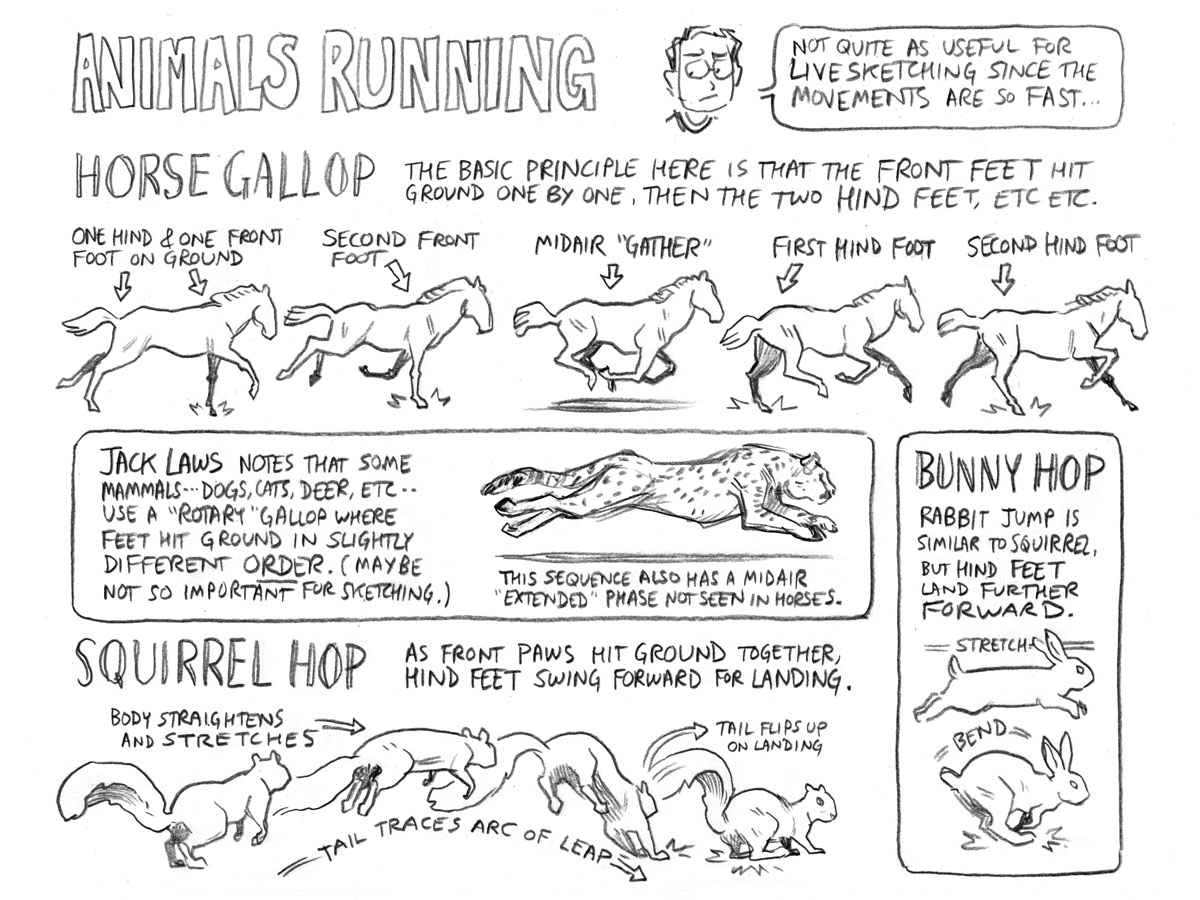 ANIMALS RUNNING
NOT QUITE AS USEFUL FOR
LIVE SKETCHING SINCE THE
MOVEMENTS ARE SO FAST...
HORSE GALLOP
THE BASIC PRINCIPLE HERE IS THAT THE FRONT FEET HIT
GROUND ONE BY ONE, THEN THE TWO HIND FEET, ETC ETC.
ONE HIND & ONE FRONT
FOOT ON GROUND
SECOND FRONT
FOOT
MIDAIR "GATHER"
FIRST HIND FOOT
SECOND HIND FOOT
JACK LAWS NOTES THAT SOME
MAMMALS...DOGS, CATS, DEER, ETC..
USE A "ROTARY" GALLOP WHERE
FEET HIT GROUND IN SLIGHTLY
DIFFERENT ORDER. (MAYBE
NOT SO IMPORTANT FOR SKETCHING.)
THIS SEQUENCE ALSO HAS A MIDAIR
"EXTENDED" PHASE NOT SEEN IN HORSES.
BUNNY HOP
RABBIT JUMP IS
SIMILAR TO SQUIRREL,
BUT HIND FEET
LAND FURTHER
FORWARD.
STRETCH
BEND
SQUIRREL HOP
AS FRONT PAWS HIT GROUND TOGETHER,
HIND FEET SWING FORWARD FOR LANDING.
BODY STRAIGHTENS
AND STRETCHES
TAIL FLIPS UP
ON LANDING
TAIL TRACES ARC OF LEAP